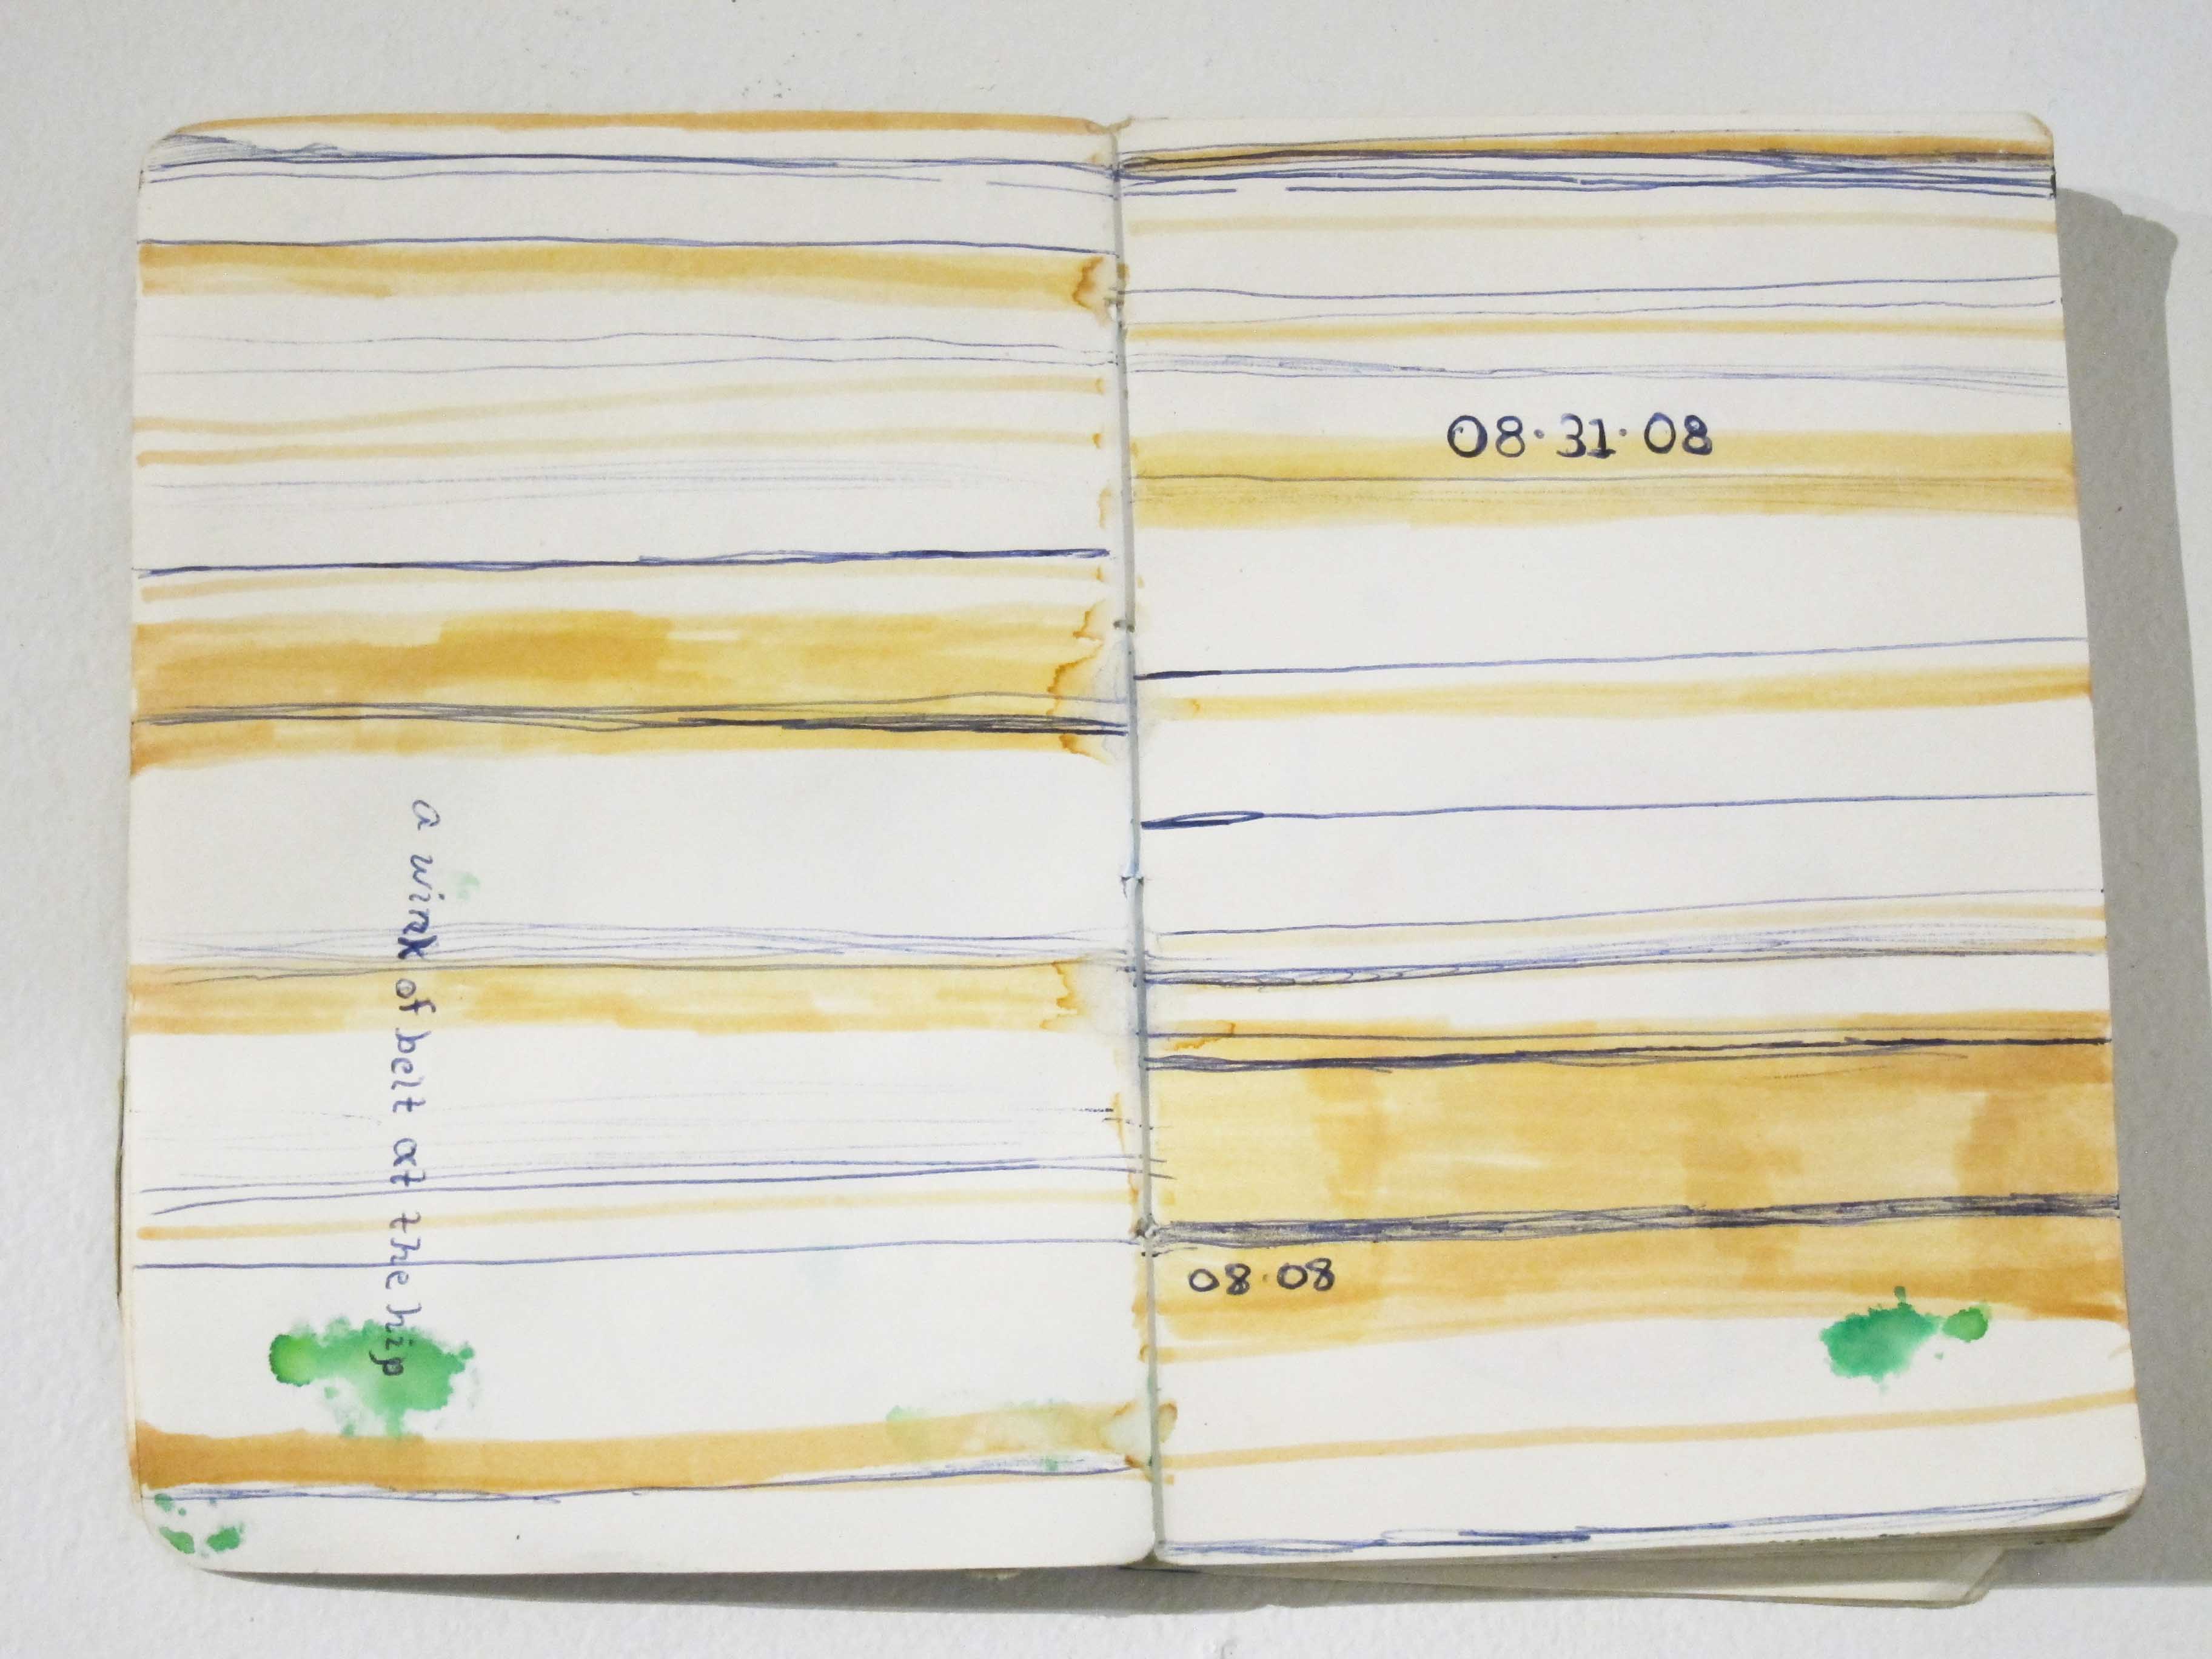 a wink of belt at the hip
08·31·08
08·08